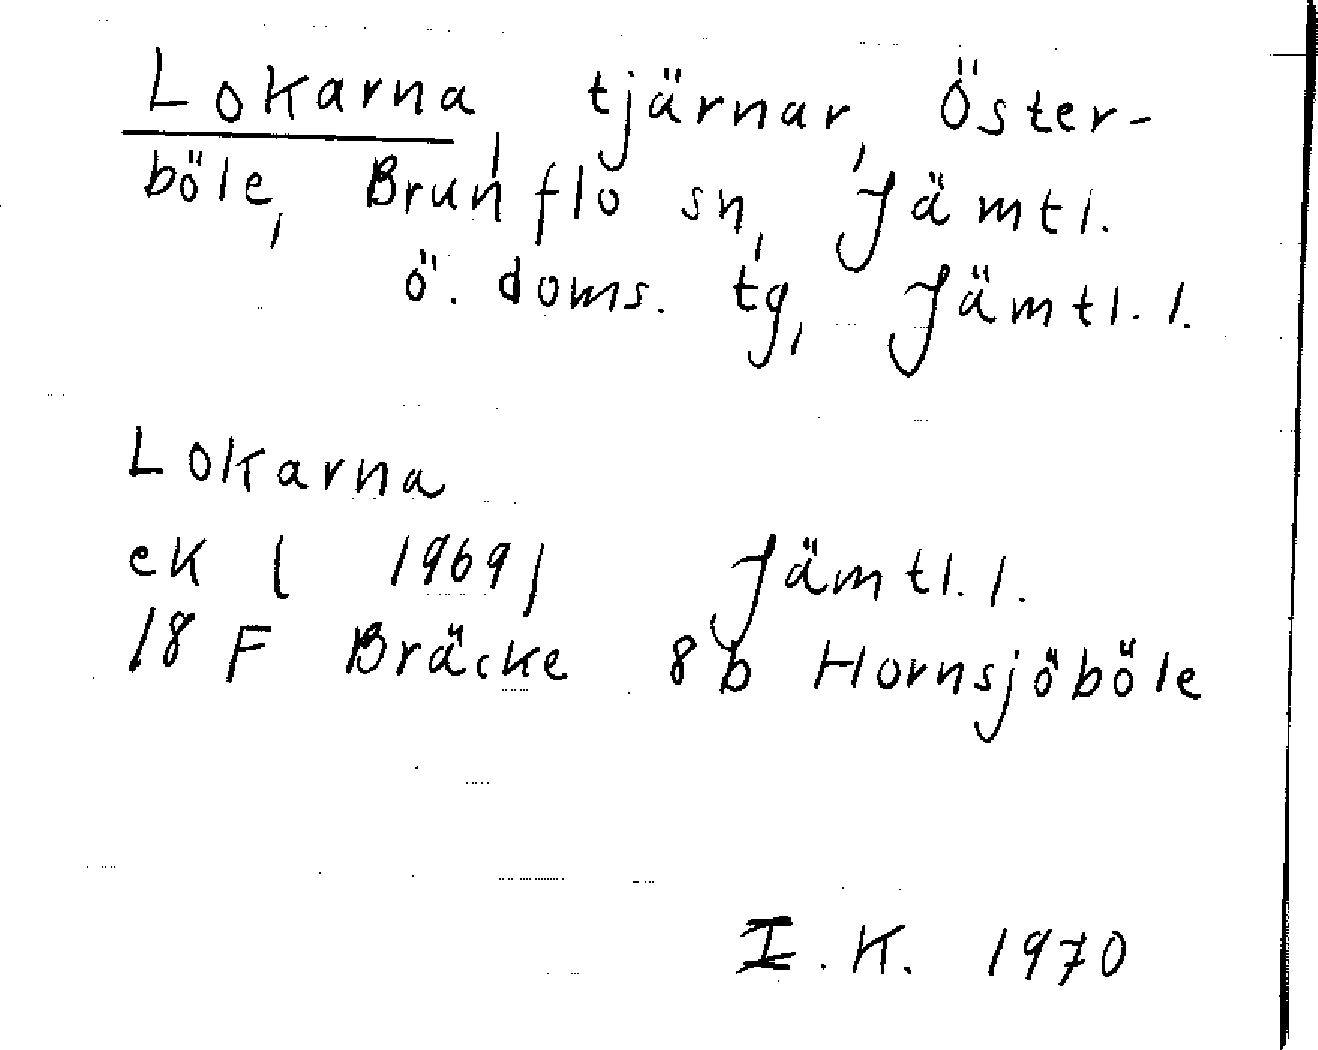 Lokarna, tjärnar, Öster-
böle, Brunflo sn, Jämtl.
ö. doms. tg, Jämtl. l.
Lokarna
ek (1969) Jämtl. l.
18 F Bräcke 8b Hornsjöböle
I. K. 1970